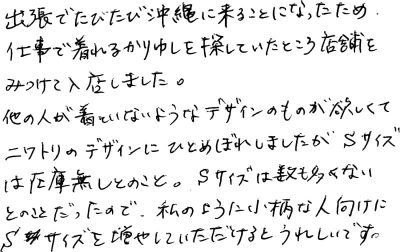 出張でたびたび沖縄に来ることになったため、
仕事で着れるかりゆしを探していたところ店舗を
みつけて入店しました。
他の人が着ていないようなデザインのものが欲しくて
ニワトリのデザインにひとめぼれしましたがSサイズ
は在庫無しとのこと。Sサイズは数も多くない
とのことだったので、私のように小柄な人向けに
Sサイズを増やしていただけるとうれしいです。